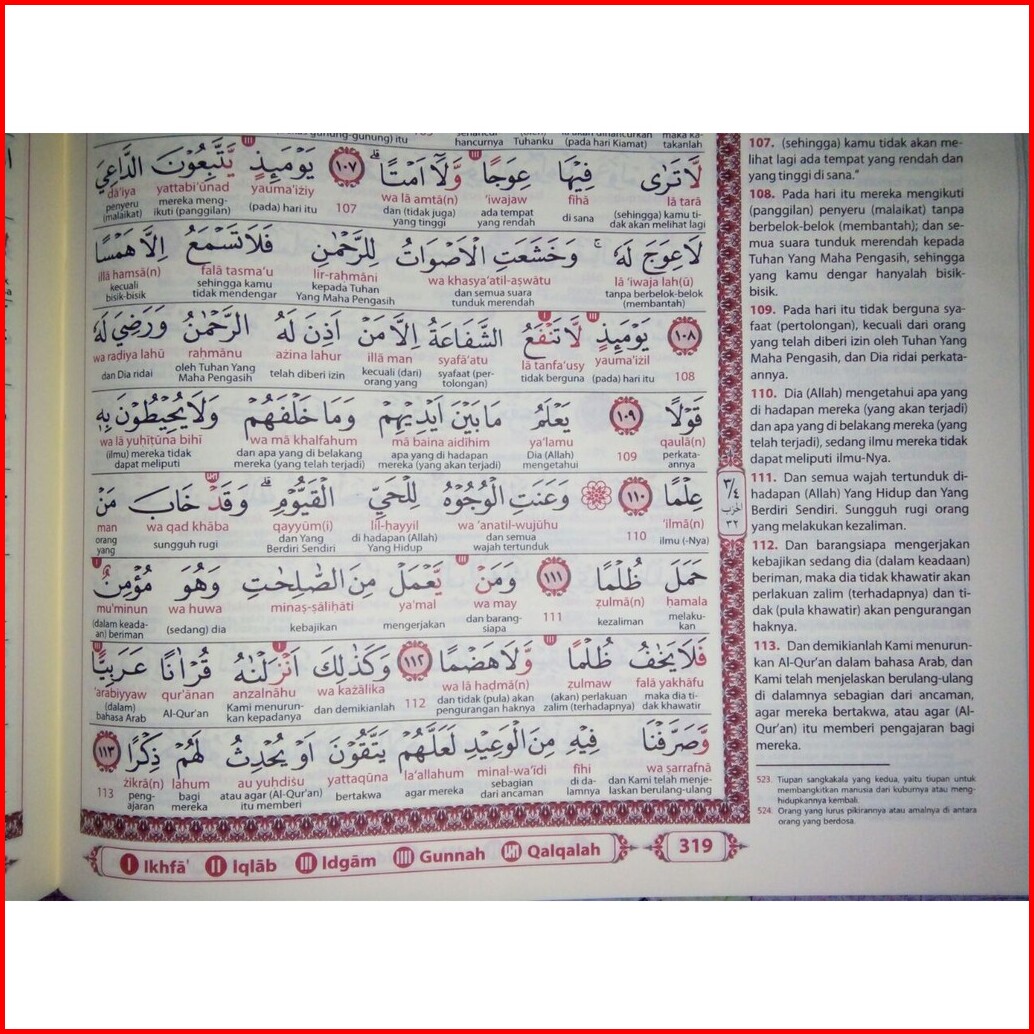 لَا تَرٰى فِيْهَا عِوَجًا وَّلَآ اَمْتًا ۗ ١٠٧ يَوْمَىِٕذٍ يَّتَّبِعُوْنَ الدَّاعِيَ
lā tarā fīhā 'iwajaw wa lā amtā(n) 107 yauma'iżiy yattabi'ūnad dā'iya
(sehingga) kamu tidak akan melihat lagi di sana ada tempat yang rendah dan (tidak juga) yang tinggi (pada) hari itu mereka mengikuti (panggilan) penyeru (malaikat)
لَا عِوَجَ لَهٗ ۚ وَخَشَعَتِ الْاَصْوَاتُ لِلرَّحْمٰنِ فَلَا تَسْمَعُ اِلَّا هَمْسًا
lā 'iwaja lah(ū) wa khasya'atil-aṣwātu lir-raḥmāni falā tasma'u illā hamsā(n)
tanpa berbelok-belok (membantah) dan semua suara tunduk merendah kepada Tuhan Yang Maha Pengasih sehingga kamu tidak mendengar kecuali bisik-bisik
١٠٨ يَوْمَىِٕذٍ لَّا تَنْفَعُ الشَّفَاعَةُ اِلَّا مَنْ اَذِنَ لَهُ الرَّحْمٰنُ وَرَضِيَ لَهٗ
108 yauma'iżil lā tanfa'usy syafā'atu illā man ażina lahur raḥmānu wa raḍiya lahū
(pada) hari itu tidak berguna syafaat (pertolongan) kecuali (dari) orang yang telah diberi izin oleh Tuhan Yang Maha Pengasih dan Dia ridai
قَوْلًا ١٠٩ يَعْلَمُ مَا بَيْنَ اَيْدِيْهِمْ وَمَا خَلْفَهُمْ وَلَا يُحِيْطُوْنَ بِهٖ
qaulā(n) 109 ya'lamu mā baina aidīhim wa mā khalfahum wa lā yuḥīṭūna bihī
perkataannya Dia (Allah) mengetahui apa yang di hadapan mereka (yang akan terjadi) dan apa yang di belakang mereka (yang telah terjadi) (ilmu) mereka tidak dapat meliputi
عِلْمًا ١١٠ وَعَنَتِ الْوُجُوْهُ لِلْحَيِّ الْقَيُّوْمِ ۗ وَقَدْ خَابَ مَنْ
'ilmā(n) 110 wa 'anatil-wujūhu lil-ḥayyil qayyūm(i) wa qad khāba man
ilmu (-Nya) dan semua wajah tertunduk di hadapan (Allah) Yang Hidup dan Yang Berdiri Sendiri sungguh rugi orang yang
حَمَلَ ظُلْمًا ١١١ وَمَنْ يَّعْمَلْ مِنَ الصّٰلِحٰتِ وَهُوَ مُؤْمِنٌ
ḥamala ẓulmā(n) 111 wa may ya'mal minaṣ-ṣāliḥāti wa huwa mu'minun
melakukan kezaliman dan barangsiapa mengerjakan kebajikan (sedang) dia (dalam keadaan) beriman
فَلَا يَخٰفُ ظُلْمًا وَّلَا هَضْمًا ١١٢ وَكَذٰلِكَ اَنْزَلْنٰهُ قُرْاٰنًا عَرَبِيًّا
falā yakhāfu ẓulmaw wa lā haḍmā(n) 112 wa każālika anzalnāhu qur'ānan 'arabiyyaw
maka dia tidak khawatir (akan) perlakuan zalim (terhadapnya) dan tidak (pula) akan pengurangan haknya dan demikianlah Kami menurunkan kepadanya Al-Qur'an (dalam) bahasa Arab
وَّصَرَّفْنَا فِيْهِ مِنَ الْوَعِيْدِ لَعَلَّهُمْ يَتَّقُوْنَ اَوْ يُحْدِثُ لَهُمْ ذِكْرًا ١١٣
wa ṣarrafnā fīhi minal-wa'īdi la'allahum yattaqūna au yuḥdiṡu lahum żikrā(n) 113
dan Kami telah menjelaskan berulang-ulang di dalamnya sebagian dari ancaman agar mereka bertakwa atau agar (Al-Qur'an) itu memberi bagi mereka pengajaran
Ikhfā' Iqlāb Idgām Gunnah Qalqalah
319
٣/٤
الحزب
٣٢
107. (sehingga) kamu tidak akan me-
lihat lagi ada tempat yang rendah dan
yang tinggi di sana."
108. Pada hari itu mereka mengikuti
(panggilan) penyeru (malaikat) tanpa
berbelok-belok (membantah); dan se-
mua suara tunduk merendah kepada
Tuhan Yang Maha Pengasih, sehingga
yang kamu dengar hanyalah bisik-
bisik.
109. Pada hari itu tidak berguna sya-
faat (pertolongan), kecuali dari orang
yang telah diberi izin oleh Tuhan Yang
Maha Pengasih, dan Dia ridai perkata-
annya.
110. Dia (Allah) mengetahui apa yang
di hadapan mereka (yang akan terjadi)
dan apa yang di belakang mereka (yang
telah terjadi), sedang ilmu mereka tidak
dapat meliputi ilmu-Nya.
111. Dan semua wajah tertunduk di-
hadapan (Allah) Yang Hidup dan Yang
Berdiri Sendiri. Sungguh rugi orang
yang melakukan kezaliman.
112. Dan barangsiapa mengerjakan
kebajikan sedang dia (dalam keadaan)
beriman, maka dia tidak khawatir akan
perlakuan zalim (terhadapnya) dan ti-
dak (pula khawatir) akan pengurangan
haknya.
113. Dan demikianlah Kami menurun-
kan Al-Qur'an dalam bahasa Arab, dan
Kami telah menjelaskan berulang-ulang
di dalamnya sebagian dari ancaman,
agar mereka bertakwa, atau agar (Al-
Qur'an) itu memberi pengajaran bagi
mereka.
523. Tiupan sangkakala yang kedua, yaitu tiupan untuk
membangkitkan manusia dari kuburnya atau meng-
hidupkannya kembali.
524. Orang yang lurus pikirannya atau amalnya di antara
orang yang berdosa.